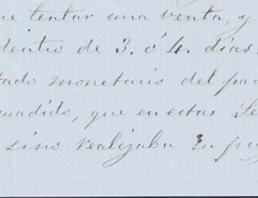 ue tentar una venta, y
dentro de 3. ó 4. dias.
tado monetario del pa
uadido, que en estas Le
sino realizaba su pro